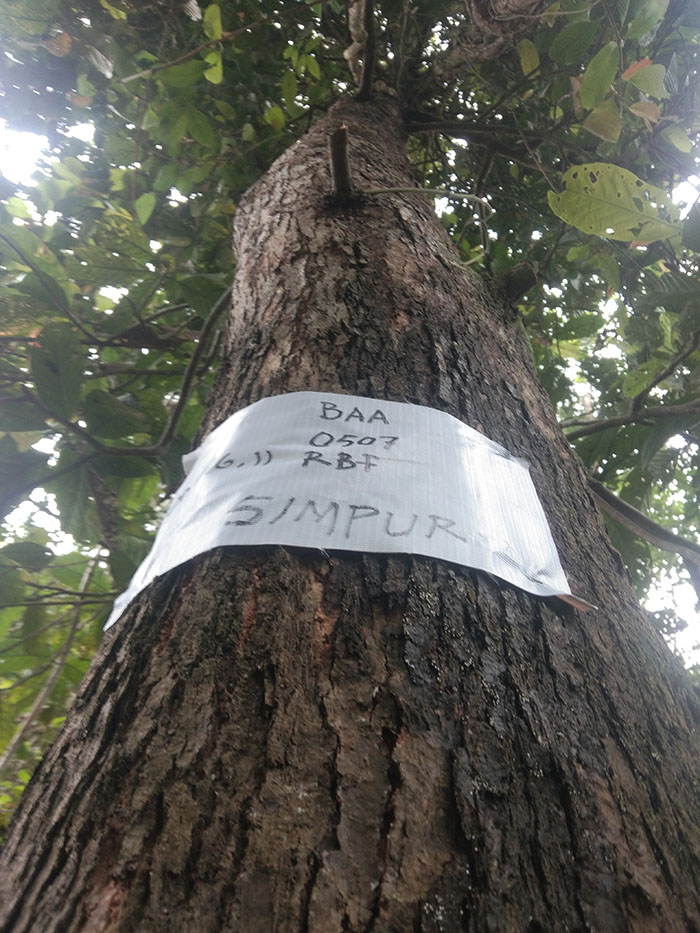 BAA
0507
6.11 RBF
SIMPUR